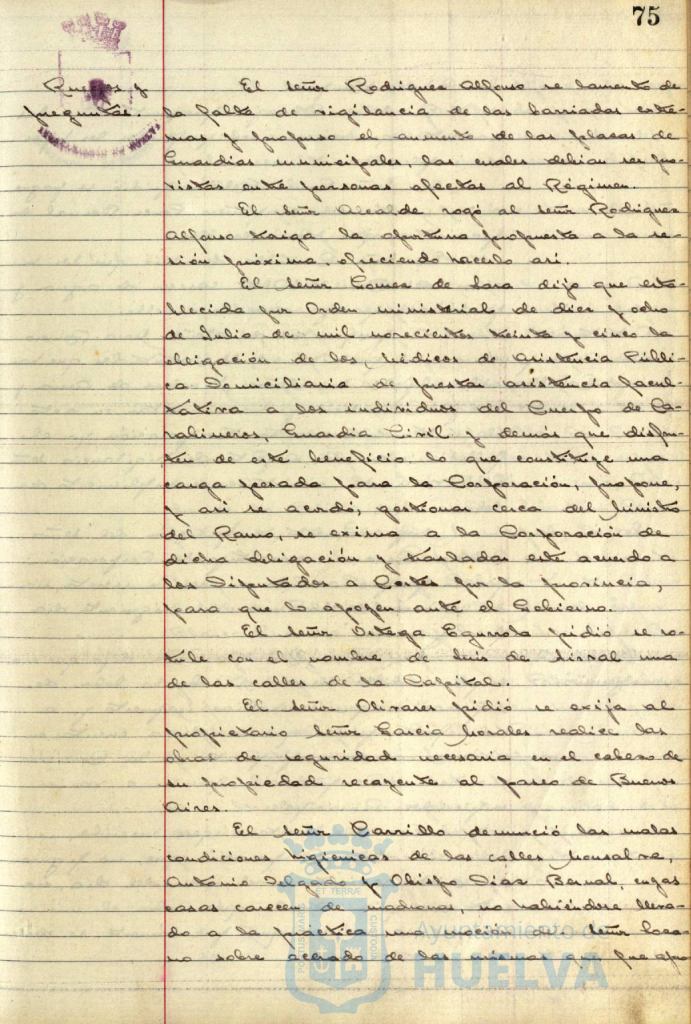 75
Ruegos y
preguntas.
El señor Rodriguez Alfonso se lamentó de
la falta de vigilancia de las barriadas extre-
mas y propuso el aumento de las plazas de
Guardias municipales, las cuales debian ser pro-
vistas entre personas afectas al Régimen.
El señor Alcalde rogó al señor Rodriguez
Alfonso traiga la oportuna propuesta a la se-
sión próxima, ofreciendo hacerlo asi.
El señor Gomez de Lara dijo que esta-
blecida por Orden ministerial de diez y ocho
de Julio de mil novecientos treinta y cinco la
obligación de los Médicos de Asistencia Públi-
ca Domiciliaria de prestar asistencia facul-
tativa a los individuos del Cuerpo de Ca-
rabineros, Guardia Civil y demás que disfru-
ten de este beneficio, lo que constituye una
carga pesada para la Corporación, propone,
y asi se acordó, gestionar cerca del Ministro
del Ramo, se exima a la Corporación de
dicha obligación y trasladar este acuerdo a
los Diputados a Cortes por la provincia,
para que lo apoyen ante el Gobierno.
El señor Ortega Egurrola pidió se ro-
tule con el nombre de Luis de Sirval una
de las calles de la Capital.
El señor Olivares pidió se exija al
propietario señor Garcia Morales realice las
obras de seguridad necesaria en el cabezo de
su propiedad recayente al paseo de Buenos
Aires.
El señor Carrillo denunció las malas
condiciones higienicas de las calles Monsalve,
Antonio Delgado y Obispo Diaz Bernal, cuyas
casas carecen de madronas, no habiéndose lleva-
do a la práctica una moción del señor Loza-
no sobre acerado de las mismas que fue apro-
PORTUS MARIS ET TERRAE CUSTODIA
Ayuntamiento de
HUELVA